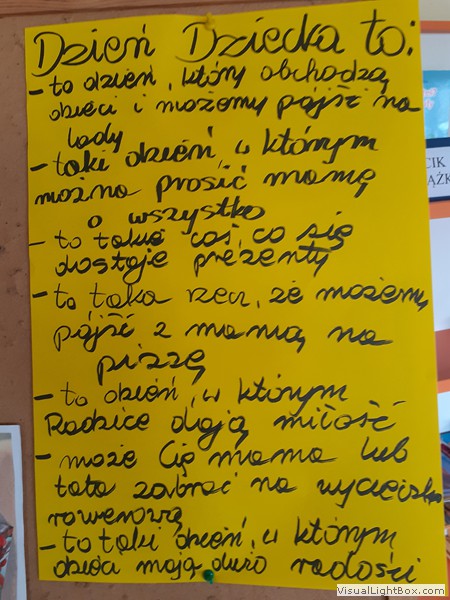 Dzień Dziecka to:
- to dzień, który obchodzą
dzieci i możemy pójść na
lody
- taki dzień, w którym
można prosić mamę
o wszystko
- to takie coś, co się
dostaje prezenty
- to taka rzecz, że możemy
pójść z mamą na
pizzę
- to dzień, w którym
Rodzice dają miłość
- może Cię mama lub
tata zabrać na wycieczkę
rowerową
- to taki dzień, w którym
dzieci mają dużo radości
CIK
ĄŻK
VisualLightBox.com